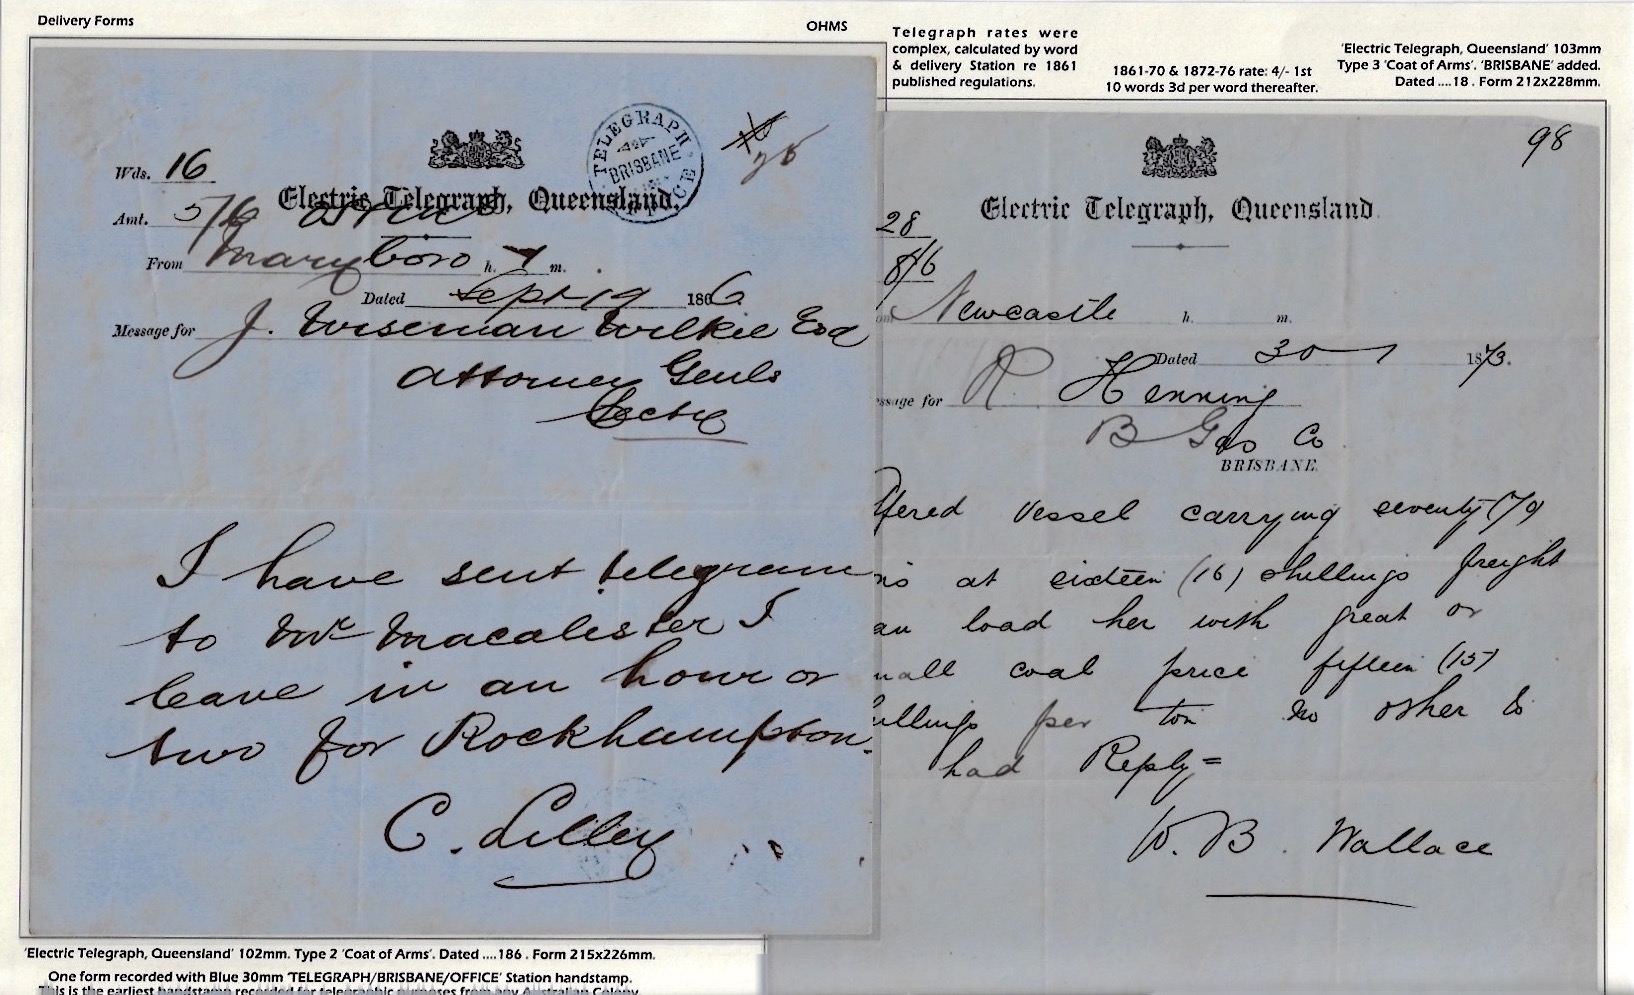 Delivery Forms
OHMS
Telegraph rates were
complex, calculated by word
& delivery Station re 1861
published regulations.
1861-70 & 1872-76 rate: 4/- 1st
10 words 3d per word thereafter.
'Electric Telegraph, Queensland' 103mm
Type 3 'Coat of Arms'. 'BRISBANE' added.
Dated ....18 . Form 212x228mm.
TELEGRAPH
BRISBANE
OFFICE
Wds. 16
Electric Telegraph, Queensland.
Amt. 5/6
From Maryboro h. m.
Dated Sept 19 1866
Message for J. Wiseman Wilkie Esq
Attorney Genls
Secty
I have sent telegram
to Mr Macalister I
leave in an hour or
two for Rockhampton.
C. Lilley
98
Electric Telegraph, Queensland
28
8/6
Newcastle h. m.
Dated 30 1 1873.
ssage for R Henning
B Gas Co
BRISBANE.
ffered Vessel carrying seventy (70)
ns at sixteen (16) shillings freight
an load her with great or
mall coal price fifteen (15)
illings per ton no other to
had Reply=
W. B. Wallace
'Electric Telegraph, Queensland' 102mm. Type 2 'Coat of Arms'. Dated ....186 . Form 215x226mm.
One form recorded with Blue 30mm 'TELEGRAPH/BRISBANE/OFFICE' Station handstamp.
This is the earliest handstamp recorded for telegraphic purposes from any Australian Colony.